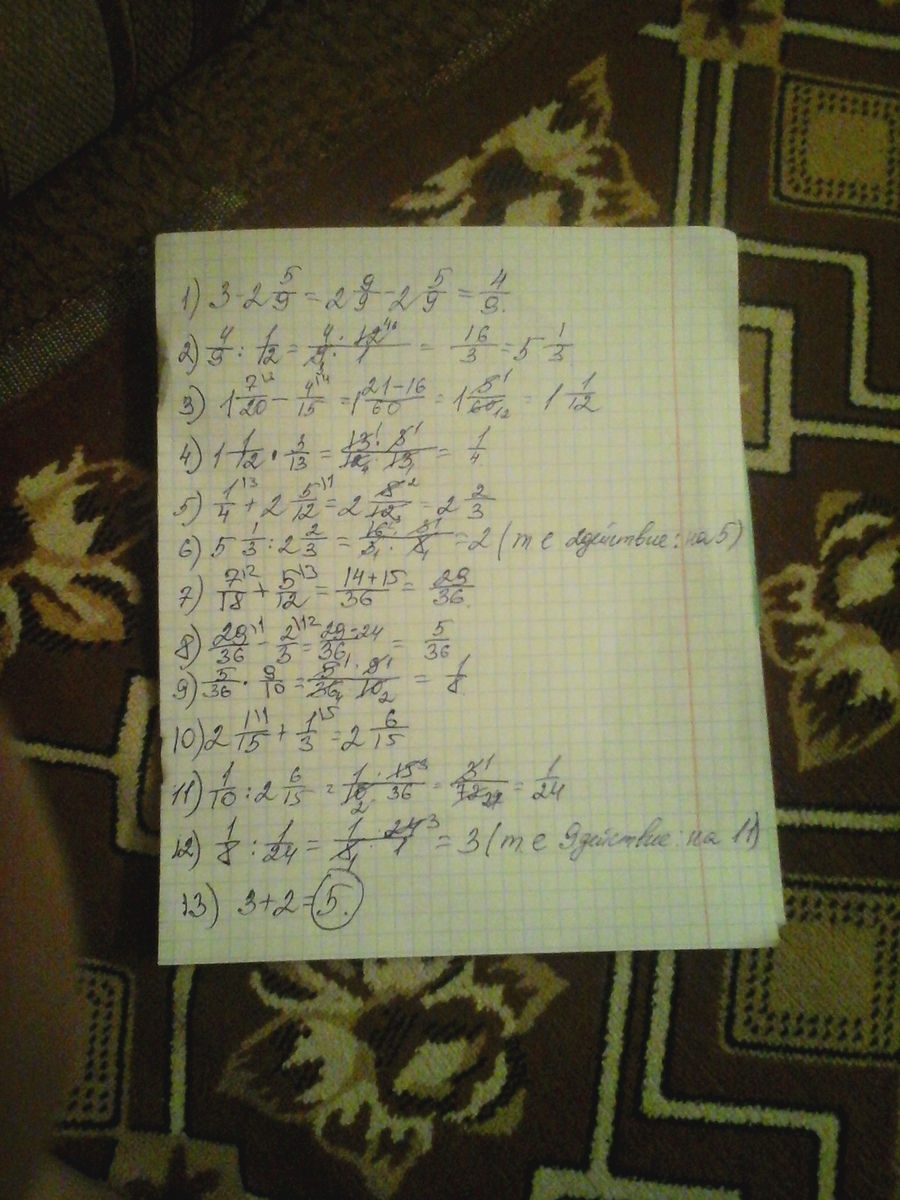 1) 3 - 2 5/9 = 2 9/9 - 2 5/9 = 4/9.
2) 4/9 : 1/12 = 4 · 12/9 · 1 = 16/3 = 5 1/3
3) 1 7/20 - 4/15 = 1 21-16/60 = 1 5/60 = 1 1/12
4) 1 1/12 · 3/13 = 13 · 3/12 · 13 = 1/4
5) 1/4 + 2 5/12 = 2 8/12 = 2 2/3
6) 5 1/3 : 2 2/3 = 16 · 3/3 · 8 = 2 (т е 2действие: на 5)
7) 7/18 + 5/12 = 14+15/36 = 29/36.
8) 29/36 - 2/3 = 29-24/36 = 5/36
9) 5/36 · 9/10 = 5 · 9/36 · 10 = 1/8
10) 2 1/15 + 1/3 = 2 6/15
11) 1/10 : 2 6/15 = 1 · 15/10 · 36 = 3/72 = 1/24
12) 1/8 : 1/24 = 1 · 24/8 · 1 = 3 (т е 9действие: на 11)
13) 3+2=5.